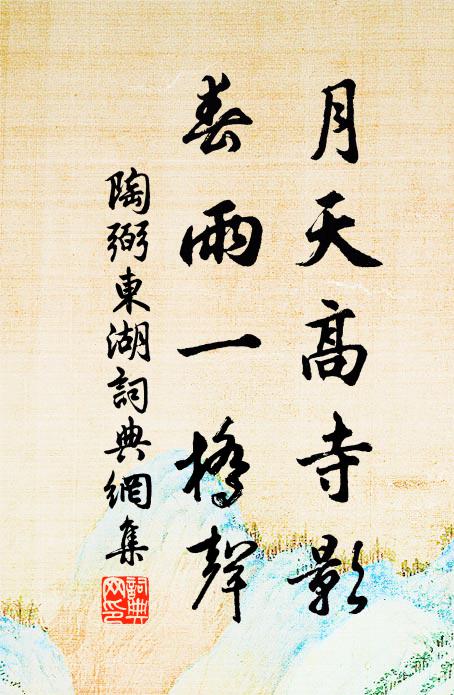 月天高寺影
春雨一橋聲
陶弼東湖詞典網集
詞典网印